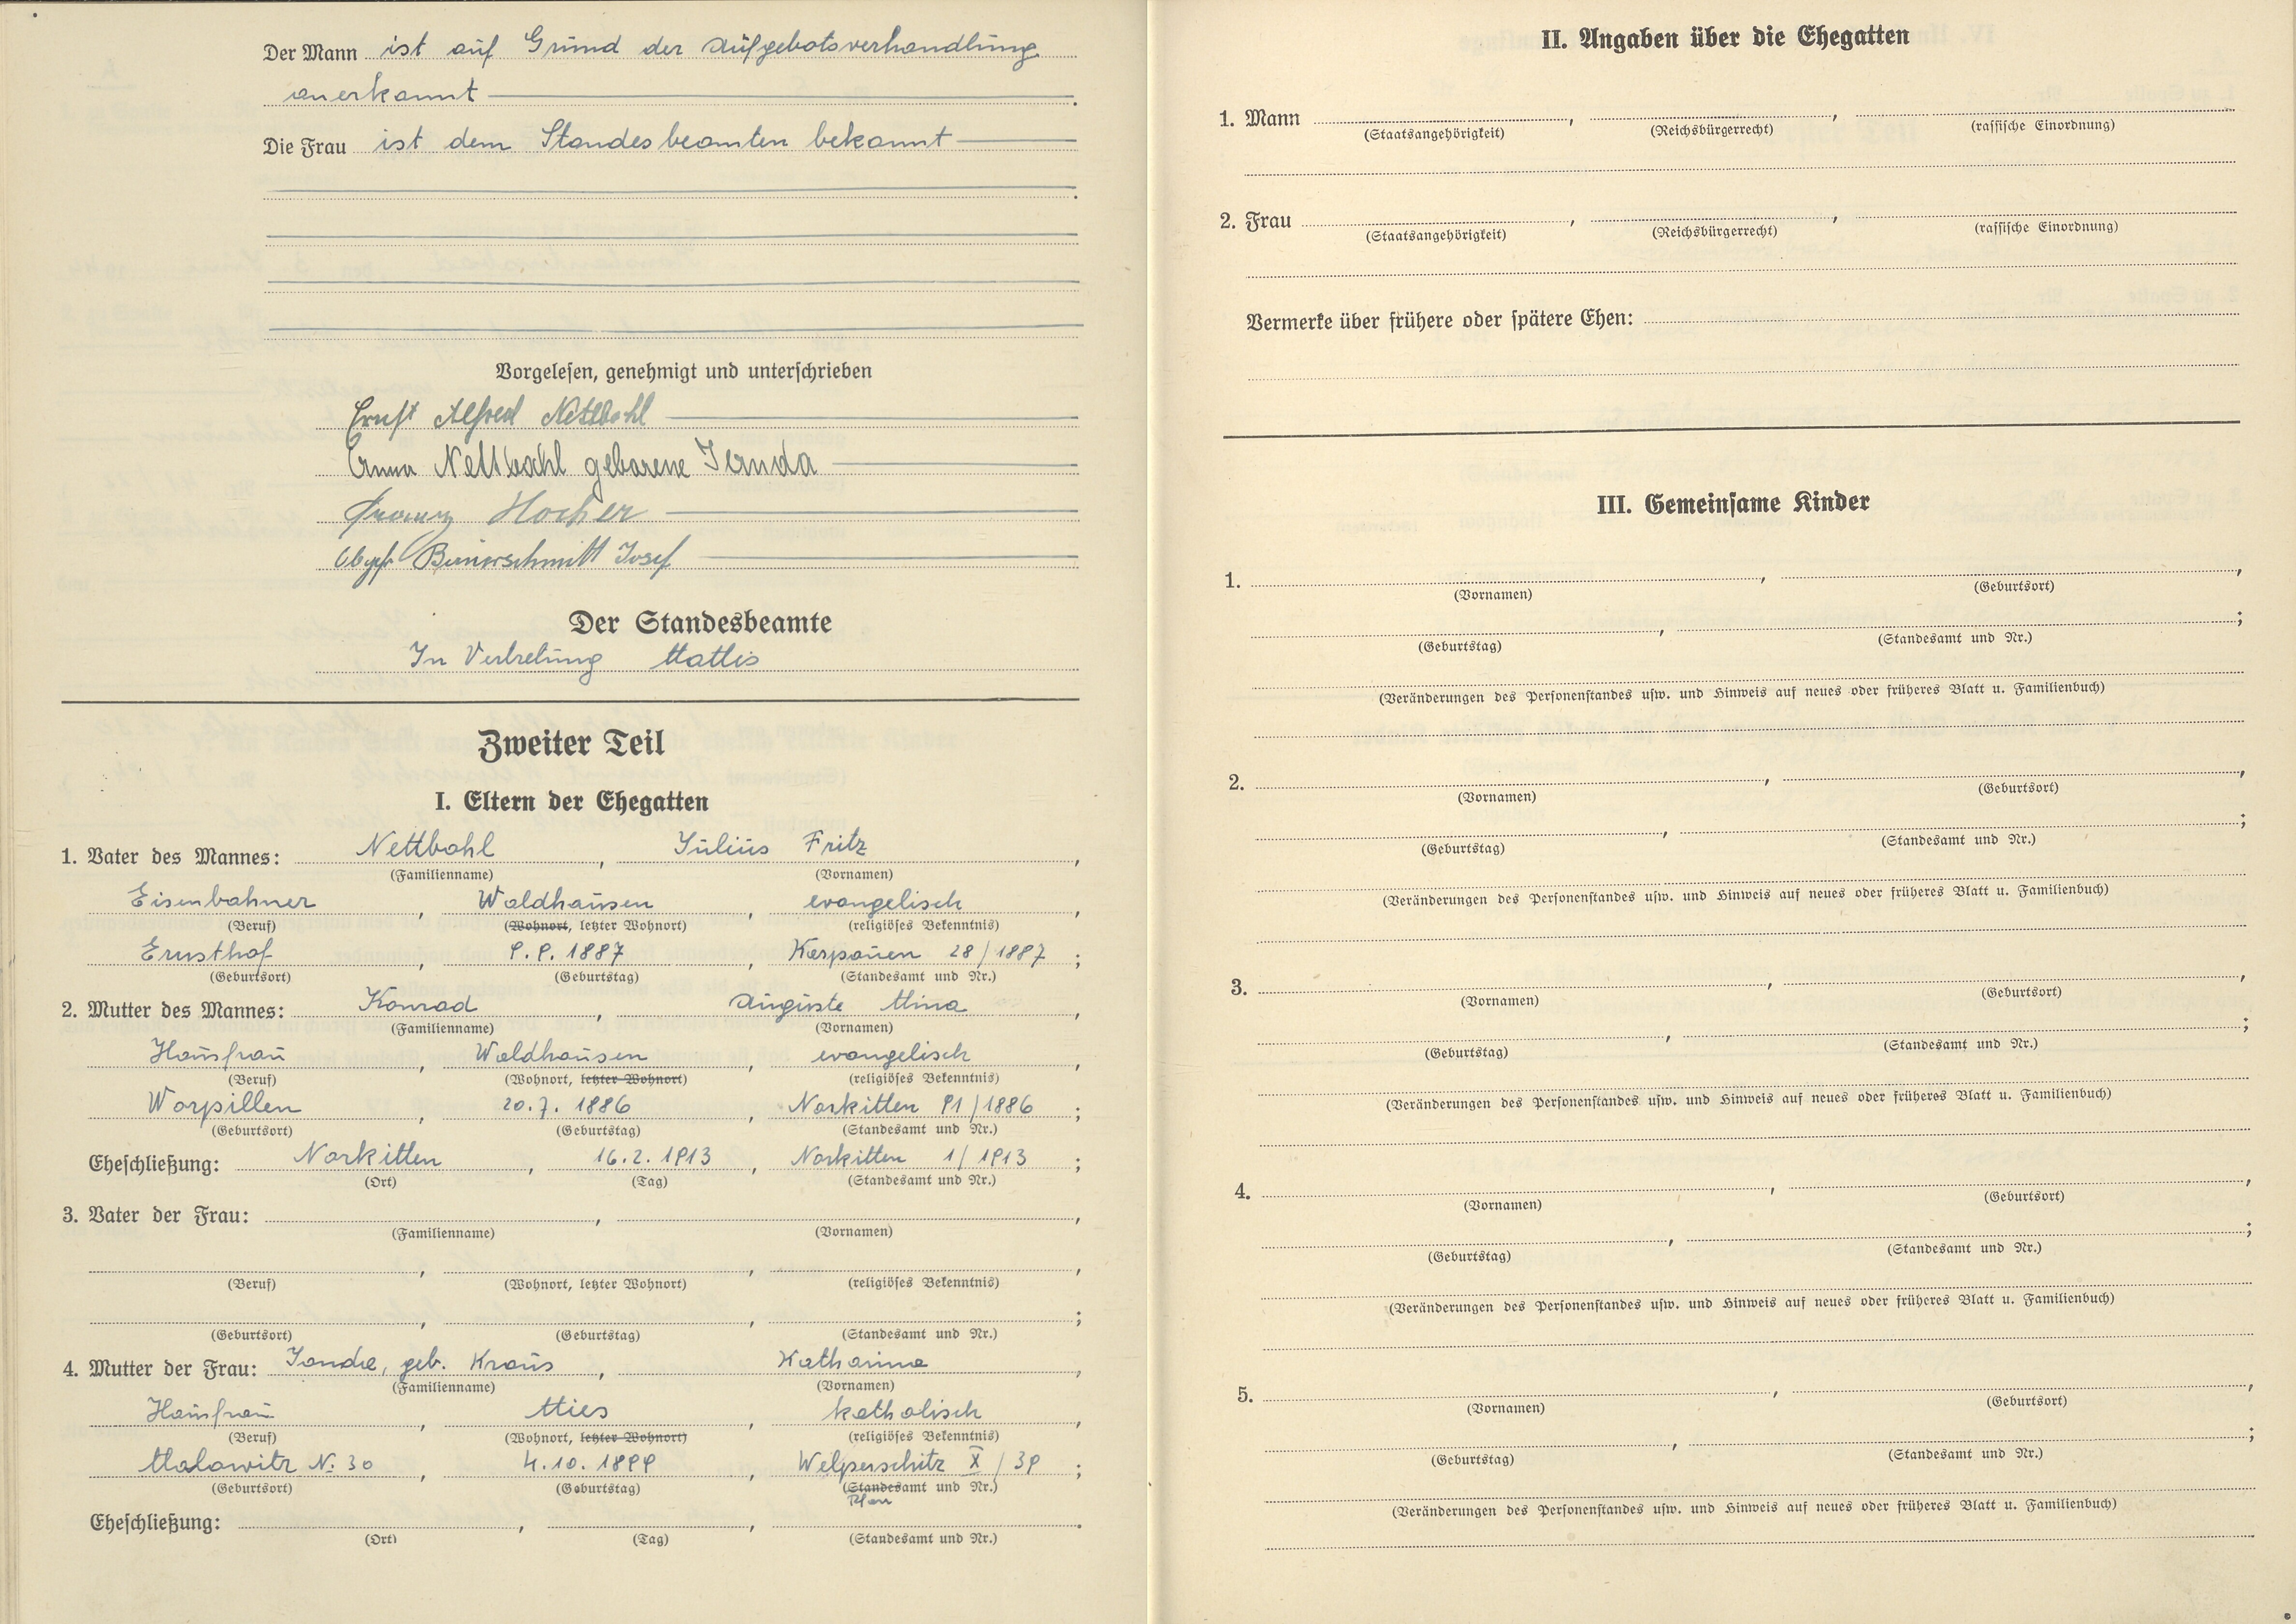 Der Mann ist auf Grund der Aufgebotsverhandlung
anerkannt
Die Frau ist dem Standesbeamten bekannt
Vorgelesen, genehmigt und unterschrieben
Ernst Alfred Nettbohl
Anna Nettbohl geborene Janda
Franz Hocher
Obgfr. Josef
Der Standesbeamte
In Vertretung Mattis
Zweiter Teil
I. Eltern der Ehegatten
1. Vater des Mannes: Nettbohl, Julius Fritz,
(Familienname) (Vornamen)
Eisenbahner, Waldhausen, evangelisch,
(Beruf) (Wohnort, letzter Wohnort) (religiöses Bekenntnis)
Ernsthof, 9.9.1887, Karpauen 28/1887;
(Geburtsort) (Geburtstag) (Standesamt und Nr.)
2. Mutter des Mannes: Konrad, Auguste Mina,
(Familienname) (Vornamen)
Hausfrau, Waldhausen, evangelisch,
(Beruf) (Wohnort, letzter Wohnort) (religiöses Bekenntnis)
Worpillen, 20.7.1886, Norkitten 91/1886;
(Geburtsort) (Geburtstag) (Standesamt und Nr.)
Eheschließung: Norkitten, 16.2.1913, Norkitten 1/1913;
(Ort) (Tag) (Standesamt und Nr.)
3. Vater der Frau: , ,
(Familienname) (Vornamen)
, , ,
(Beruf) (Wohnort, letzter Wohnort) (religiöses Bekenntnis)
, , ;
(Geburtsort) (Geburtstag) (Standesamt und Nr.)
4. Mutter der Frau: Janda, geb. Kraus, Katharina,
(Familienname) (Vornamen)
Hausfrau, Mies, katholisch,
(Beruf) (Wohnort, letzter Wohnort) (religiöses Bekenntnis)
Malowitz N: 30, 4.10.1899, Welperschitz X/39;
(Geburtsort) (Geburtstag) (Standesamt und Nr.)
Pfarr
Eheschließung: , , .
(Ort) (Tag) (Standesamt und Nr.)
II. Angaben über die Ehegatten
1. Mann , ,
(Staatsangehörigkeit) (Reichsbürgerrecht) (rassische Einordnung)
2. Frau , ,
(Staatsangehörigkeit) (Reichsbürgerrecht) (rassische Einordnung)
Vermerke über frühere oder spätere Ehen:
III. Gemeinsame Kinder
1. , ,
(Vornamen) (Geburtsort)
, ;
(Geburtstag) (Standesamt und Nr.)
(Veränderungen des Personenstandes usw. und Hinweis auf neues oder früheres Blatt u. Familienbuch)
2. , ,
(Vornamen) (Geburtsort)
, ;
(Geburtstag) (Standesamt und Nr.)
(Veränderungen des Personenstandes usw. und Hinweis auf neues oder früheres Blatt u. Familienbuch)
3. , ,
(Vornamen) (Geburtsort)
, ;
(Geburtstag) (Standesamt und Nr.)
(Veränderungen des Personenstandes usw. und Hinweis auf neues oder früheres Blatt u. Familienbuch)
4. , ,
(Vornamen) (Geburtsort)
, ;
(Geburtstag) (Standesamt und Nr.)
(Veränderungen des Personenstandes usw. und Hinweis auf neues oder früheres Blatt u. Familienbuch)
5. , ,
(Vornamen) (Geburtsort)
, ;
(Geburtstag) (Standesamt und Nr.)
(Veränderungen des Personenstandes usw. und Hinweis auf neues oder früheres Blatt u. Familienbuch)